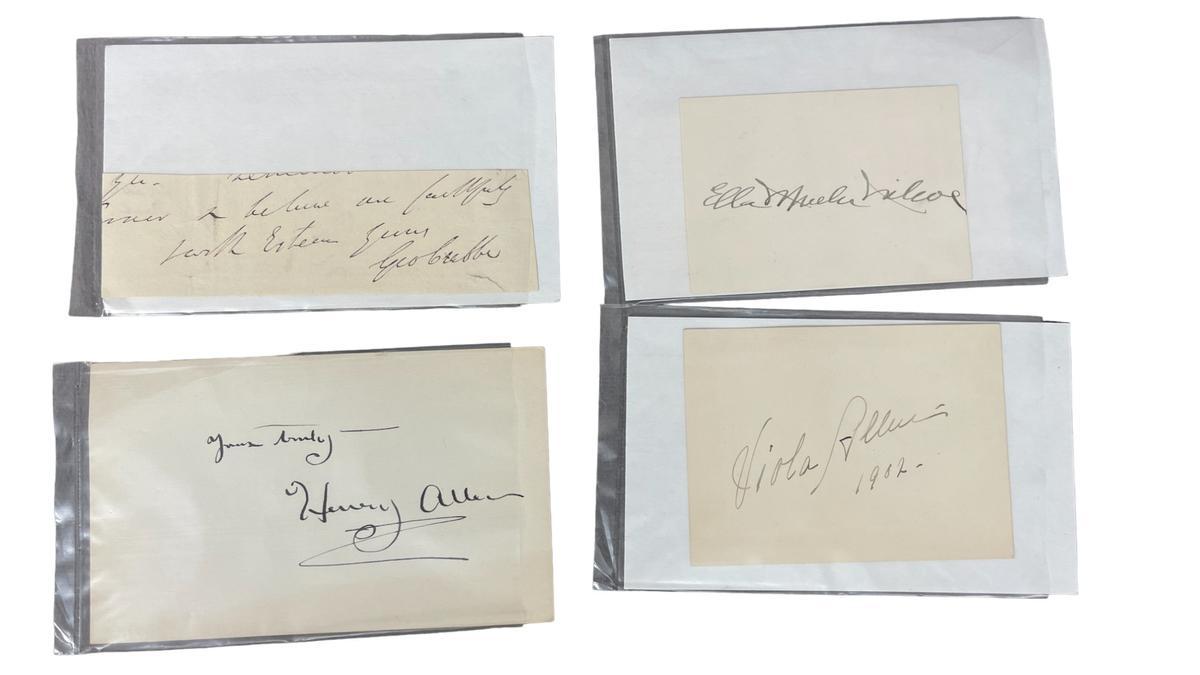 to believe me faithfully
with Esteem yours
Geo Crabbe
Ella Wheeler Wilcox
Yours truly
Henry Allen
Viola Allen
1902-